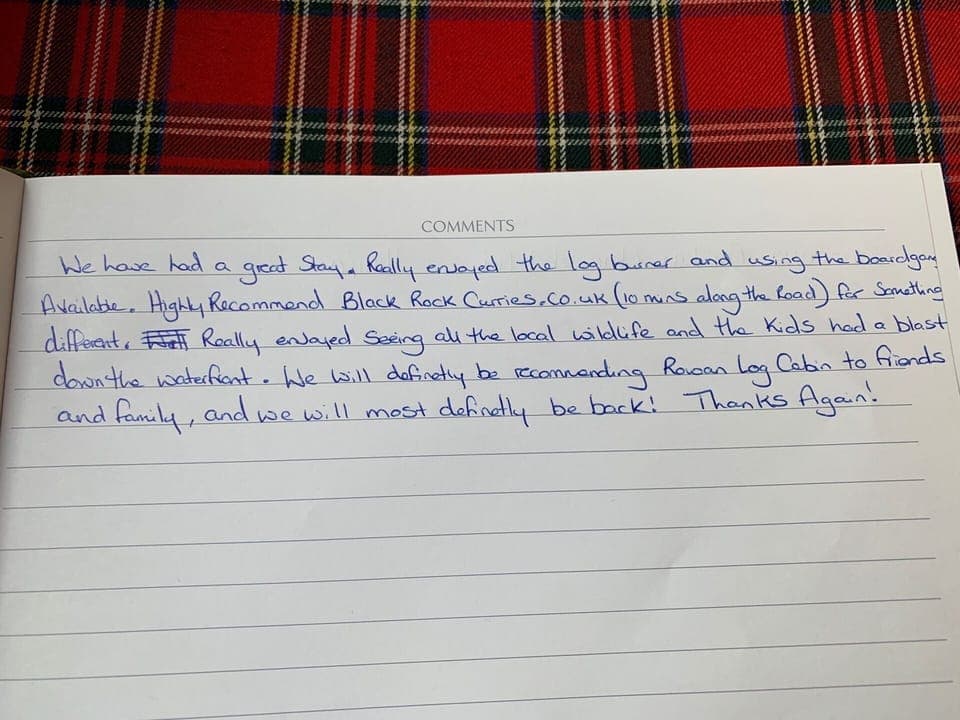 COMMENTS
We have had a great Stay. Really enjoyed the log burner and using the boardgam
Available. Highly Recommend Black Rock Curries.co.uk (10 mins along the Road) for Something
different. Really enjoyed Seeing all the local wildlife and the Kids had a blast
down the waterfront. We will definetly be recommending Rowan Log Cabin to friends
and family, and we will most definetly be back! Thanks Again!